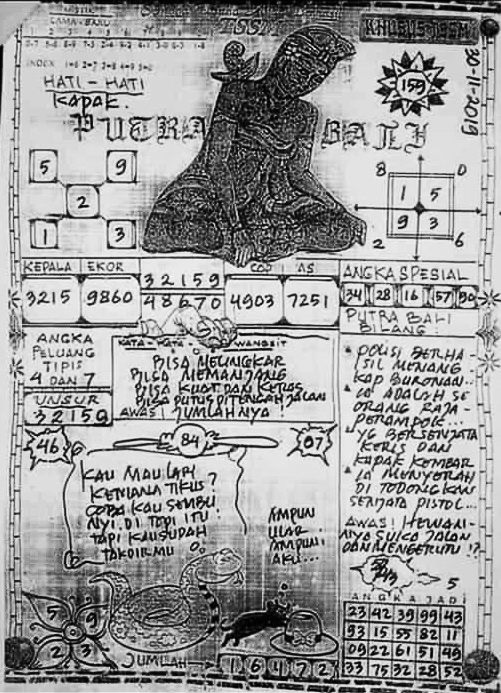 KHUSUS TSSM
LAMA = BARU
30-11-2019
HATI - HATI
KAPAK.
159
PUTRA BALI
5 9
2
1 3
8 0
1 5
9 3
2 6
KEPALA EKOR
3215 9860
32159
48670
COP AS
4903 7251
ANGKA SPESIAL
34 28 16 57 90
ANGKA
PELUANG
TIPIS
4 DAN 7
UNSUR
32159
KATA - KATA WANGSIT
BISA MELINGKAR
BISA MEMANJANG
BISA KUAT DAN KERAS
BISA PUTUS DITENGAH JALAN
AWAS! JUMLAHNYA!
PUTRA BALI
BILANG:
POLISI BERHA-
SIL MENANG
KAP BURONAN..
IA ADALAH SE
ORANG RAJA-
PERAMPOK...
YG BERSENJATA
KERIS DAN
KAPAK KEMBAR
IA MENYERAH
DI TODONGKAN
SENJATA PISTOL...
AWAS! HEWAN-
NYA SUKA JALAN
DAN MENGERUTU!?
46
84
07
KAU MAU LARI
KEMANA TIKUS?
COBA KAU SEMBU
NYI DI TOPI ITU
TAPI KAU SUDAH
TAKDIRMU
AMPUN
ULAR.
AMPUNI
AKU...
5
5 9
2 3
JUMLAH
1 6 4 7 2
ANGKA JADI
23 42 39 99 43
93 15 55 82 11
09 22 61 51 49
33 75 32 28 52